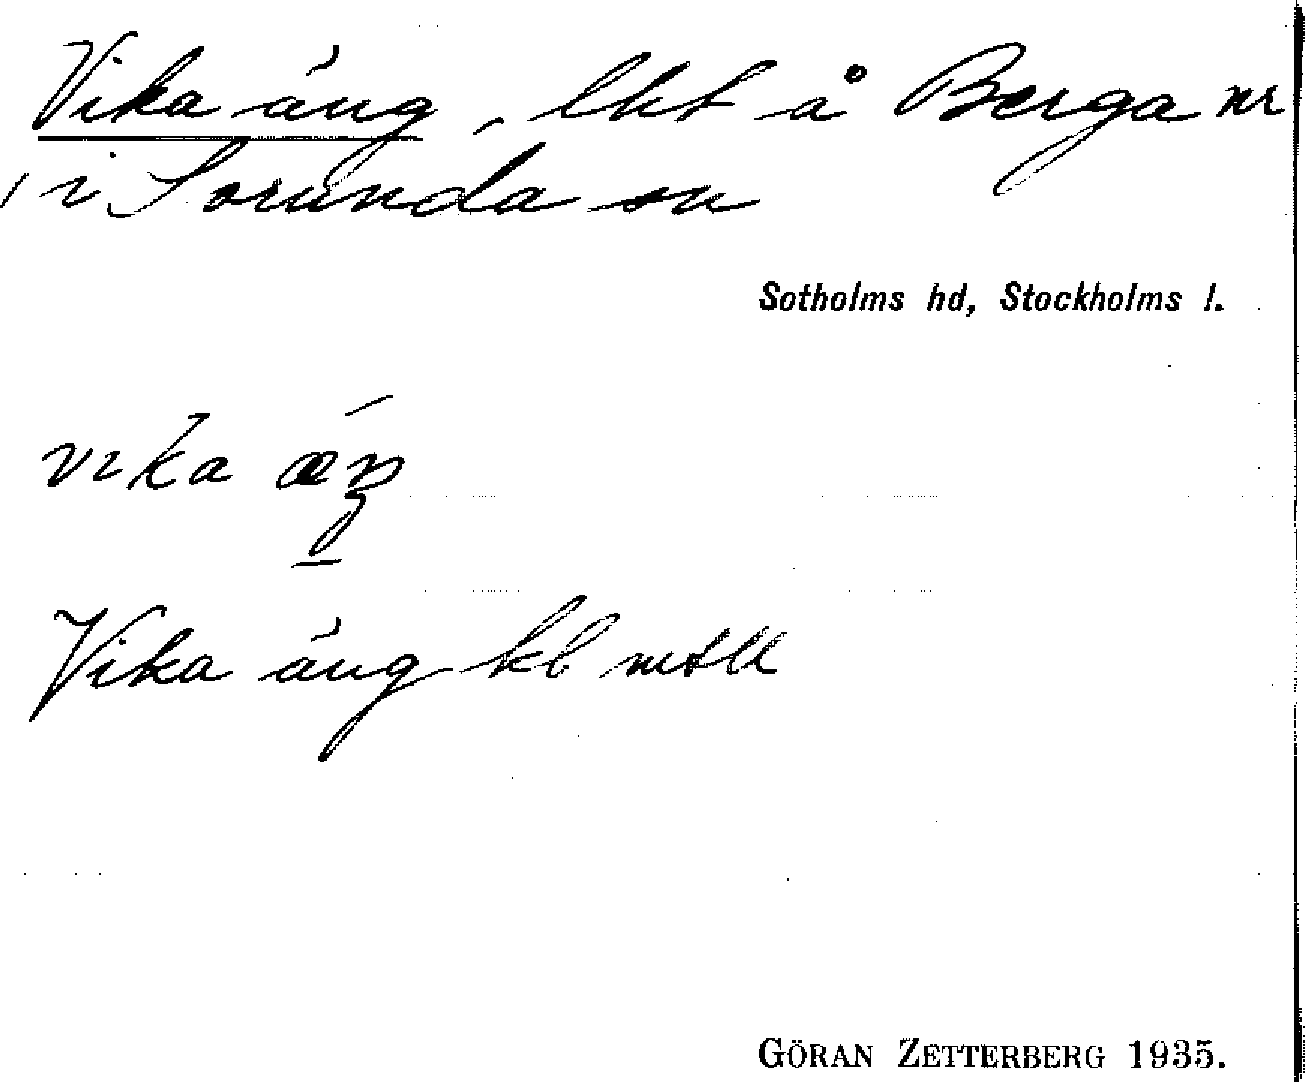 Vika äng, lht å Berga nr
1 i Sorunda sn
Sotholms hd, Stockholms l.
vika æŋ
Vika äng kb mtll
GÖRAN ZETTERBERG 1935.